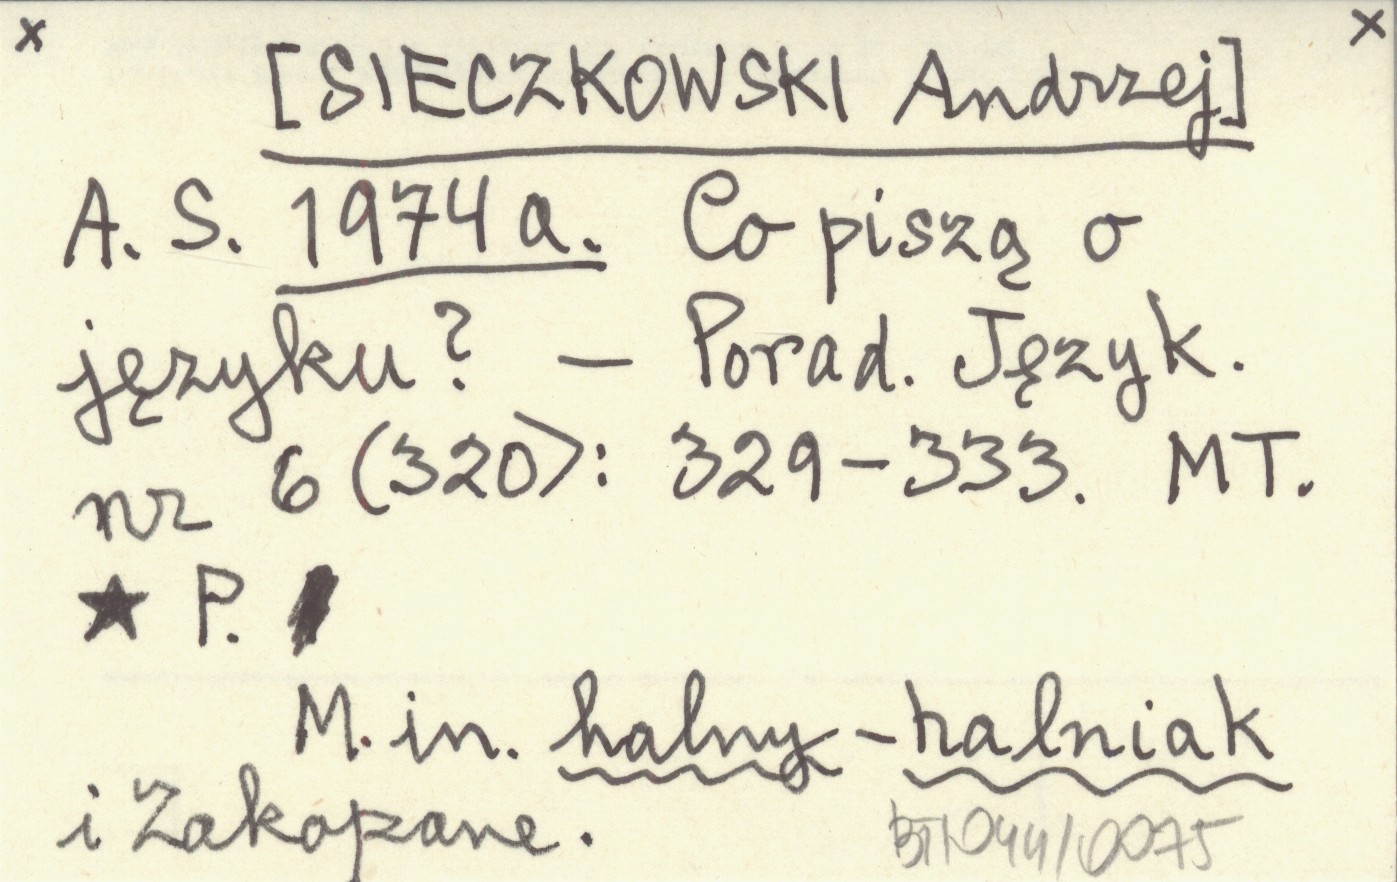 x x
[SIECZKOWSKI Andrzej]
A. S. 1974a. Co piszą o
języku? – Porad. Język.
nr 6 (320): 329–333. MT.
★ P.
M. in. halny – halniak
i Zakopane.